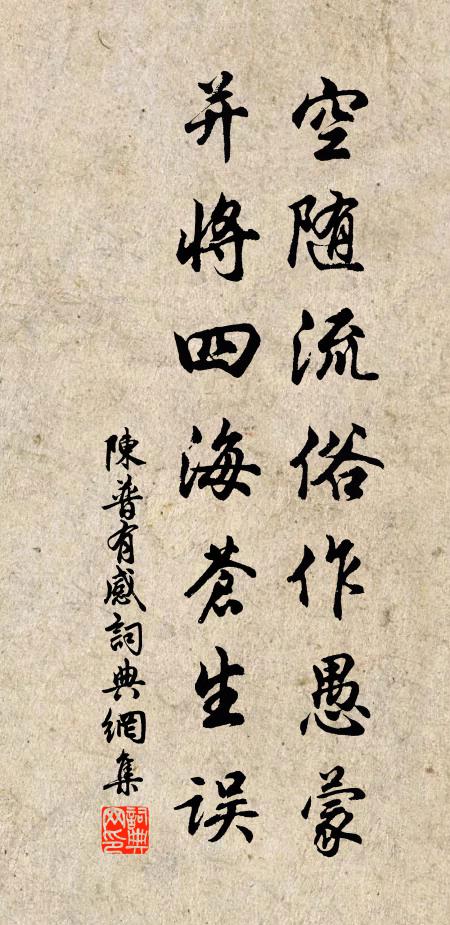 空随流俗作愚蒙
并将四海苍生误
陳普有感詞典網集
詞典網印